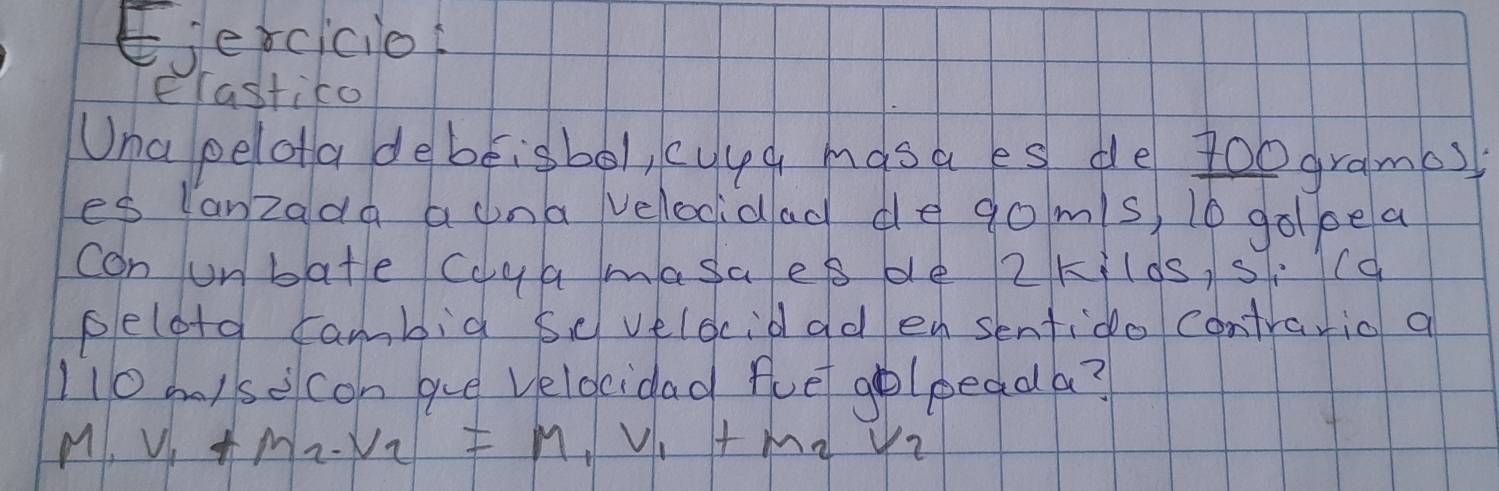 Ejercicio:
elastico
Una pelota de beisbol, cuya masa es de 700 gramos,
es lanzada a una velocidad de 90 m/s, lo golpea
con un bate cuya masa es de 2 kilos, si la
pelota cambia su velocidad en sentido contrario a
110 m/s ¿con que velocidad fue golpeada?
M₁ V₁ + M₂-V₂ = M₁ V₁ + M₂ V₂